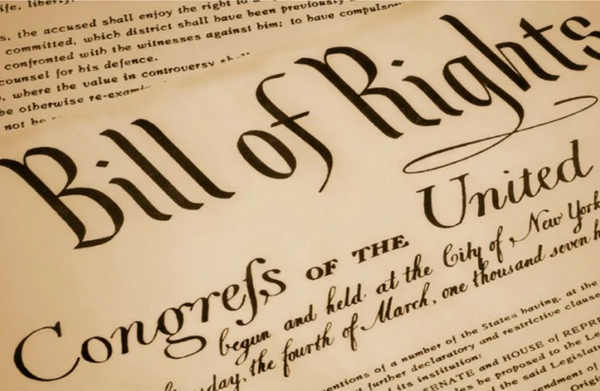 ife, liberty,
s, the accused shall enjoy the right to a
committed, which district shall have been previously
confronted with the witnesses against him; to have compulsor
counsel for his defence.
, where the value in controversy shall
be otherwise re-exami
not be
Bill of Rights
Congreſs OF THE United
begun and held at the City of New York
day, the fourth of March, one thousand seven h
entions of a number of the States having, at the
further declaratory and restrictive clause
its institution:
SENATE and HOUSE of REPRE
proposed to the Le
said Legislatu
ndment of
Origi